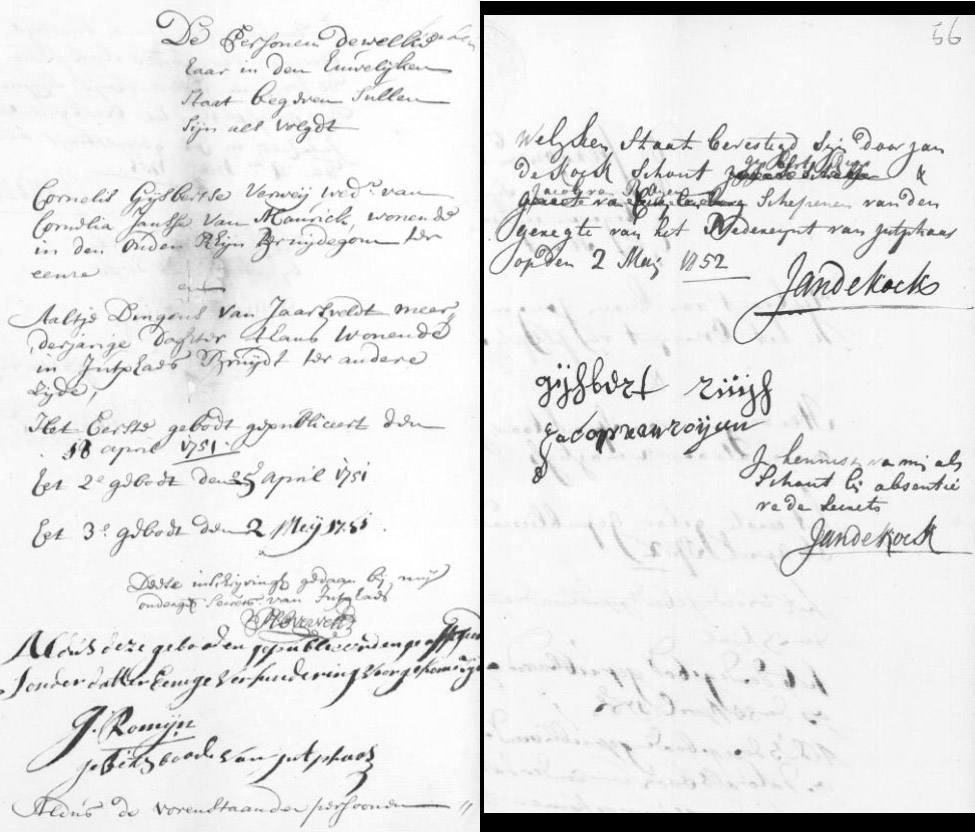 De Personen dewelke
haar in den Euwelijken
staat begeven sullen
sijn als volgdt
Cornelis Gijsbertse Verweij wedr. van
Cornelia Janse van Maurick, wonende
in den ouden Rhijn Bruijdegom ter
eenre
en
Aaltje Dingens van Jaarsveldt meer,
derjarige Doghter Alaus wonende
in Jutphaes Bruijdt ter andere
zijde,
Het Eerste gebodt gepubliceert den
18 april 1751.
Het 2e gebodt den 25 april 1751
Het 3e gebodt den 2 Meij 1751.
Deese inschrijvingh gedaan bij mij
onderges Secrets. van Jutphaes
Aldus deze gebooden gepubliceerd en
sonder datter Eenige verhindering voorgekomen
J. Romijn
gerightsboode van Jutphaas
Aldus de vorenstaanden persoonen
56
Welyken Staat bevestigd sijn door Jan
de Kock Schout Gijsbert Ruijs &
Jacop van Roijen Schepenen van den
geregte van het Nedereijnt van Jutphaas
op den 2 Maij 1752
Jan de Kock
gijsbert rüijs
Jacop van roijen
J kennisse van mij als
Schout bij absentie
va de Secrets
Jan de Kock